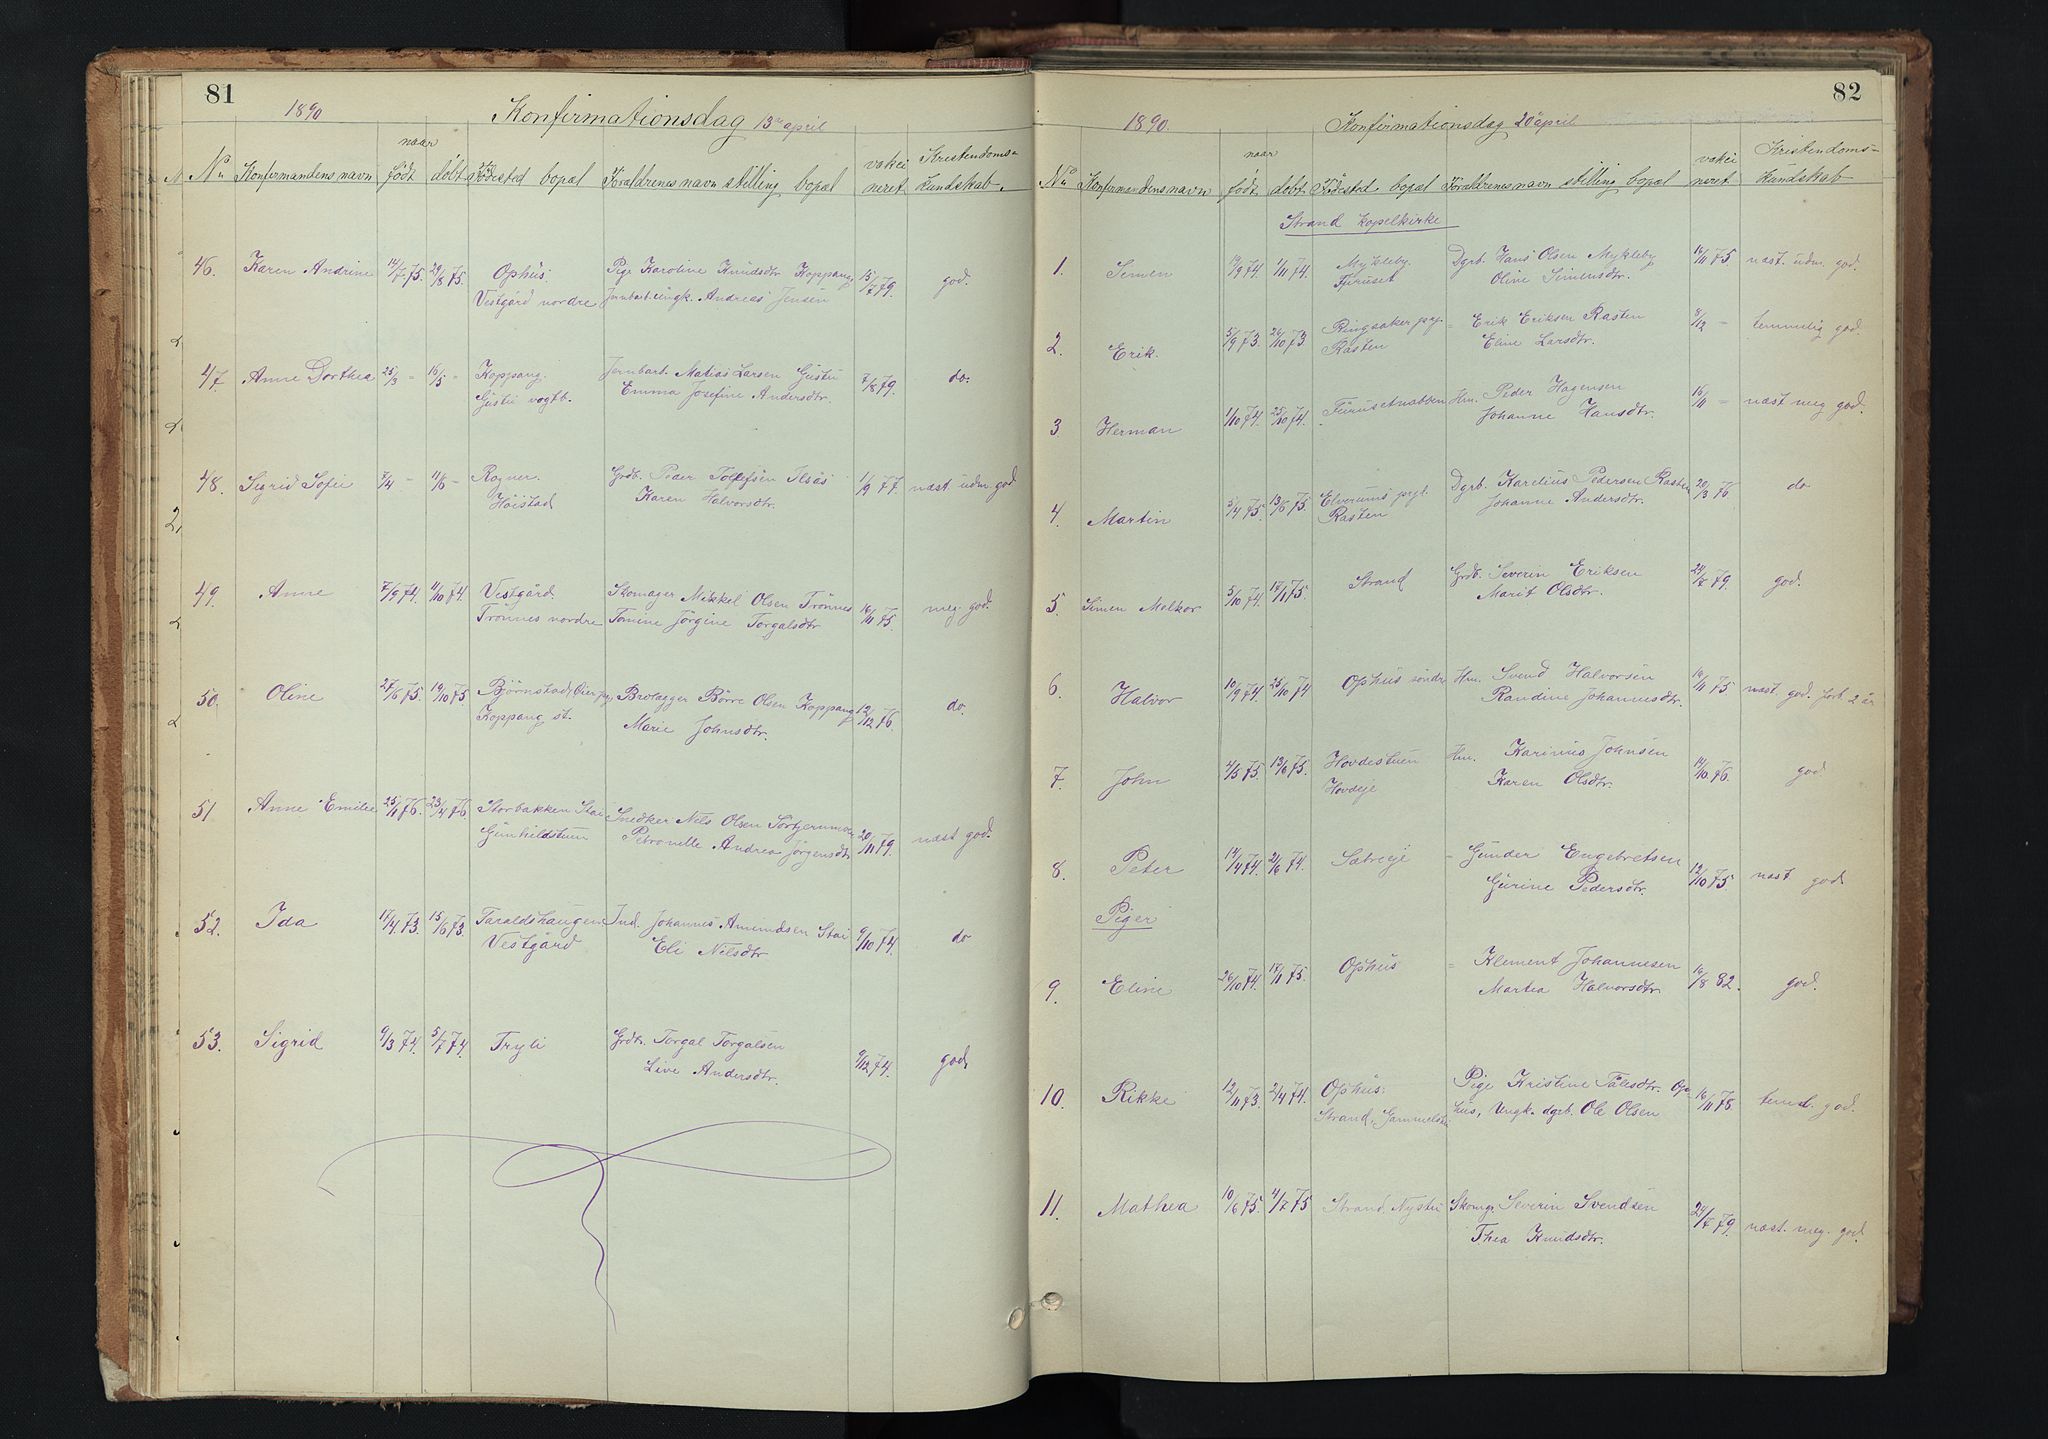 81
1890
Konfirmationsdag 13de april
naar
No Konfirmandens navn født døbt Fødested bopæl Forældrenes navn stilling bopæl vakcineret Kristendomskundskab
46. Karen Andrine 14/7 75. 29/8 75. Ophus. Pige Karoline Knudsdtr Koppang 15/7 79. god.
Vestgård nordre Jernbarb. ungk. Andreas Jensen
47 Anne Dorthea 25/3 = 16/5 = Koppang. Jernbarb. Matias Larsen Gustu 7/8 79. do.
Gustu vogtb. Emma Josefine Andersdtr.
48. Sigrid Sofie 7/4 = 11/6 = Rogner. Grdb. Peder Tollefsen Ilsås 1/9 77. næst udm. god
Höistad Karen Halvorsdtr.
49. Anne 7/9 74. 11/10 74. Vestgård Skomager Mikkel Olsen Trönnes 16/11 75. meg. god.
Trönnes nordre Tomine Jörgine Torgalsdtr
50. Oline 27/6 75. 19/10 75. Björnstad, Öier pgj. Brolægger Börre Olsen Koppang 12/12 76. do.
Koppang st. Marie Johnsdtr.
51 Anne Emilie 25/1 76. 23/4 76. Storbakken Stai Snedker Nils Olsen 20/11 79. næst god.
Gunhildstuen Petronelle Andrea Jörgensdtr
52. Ida 17/4 73. 15/6 73. Taraldshaugen Ind. Johannes Amundsen Stai 9/10 74. do
Vestgård Eli Nilsdtr
53. Sigrid 9/3 74. 5/7 74. Tryli Grdb. Torgal Torgalsen 9/12 74. god
Live Andersdtr.
82
1890.
Konfirmationsdag 20de april
naar
No Konfirmandens navn født døbt Fødested bopæl Forældrenes navn stilling bopæl vakcineret Kristendomskundskab
Strand kapelkirke
1. Simen 19/9 74. 1/11 74. Mykleby. Dgrb. Hans Olsen Mykleby 16/11 75. næst. udm. god.
Furuset Oline Simensdtr.
2. Erik. 5/9 73. 26/10 73 Ringsaker pgj. = Erik Eriksen Rasten 8/12 = temmelig god.
Rasten Eline Larsdtr.
3. Herman 1/10 74. 25/10 74. Furusetnabben Hm. Peder Hagensen 16/11 = næst meg god.
Johanne Hansdtr.
4. Martin 5/4 75. 13/6 75. Elverums pgj. Dgrb. Karelius Pedersen Rasten 20/3 76 do
Rasten Johanne Andersdtr.
5. Simen Melkor 5/10 74. 17/1 75. Strand Grdb. Severin Eriksen 24/7 79. god.
Marit Olsdtr.
6. Halvor 10/9 74. 25/10 74 Ophus söndre Hm. Svend Halvorsen 19/11 75 næst god. forb. 2 år
Randine Johannesdtr.
7. John 4/5 75. 13/6 75. Hovdestuen Hm. Karinus Johnsen 14/10 76. god
Hovdeje Karen Olsdtr.
8. Peter 14/4 74. 21/6 74. Sætreje = Gunder Engebretsen 12/10 75. næst god
Gurine Pedersdtr.
Piger
9. Eline 26/10 74. 17/1 75. Ophus = Klement Johannesen 16/8 82. god.
Martea Halvorsdtr.
10. Rikke 12/11 73. 2/4 74. Ophus. Pige Kristine Pålsdtr. Op- 16/11 75. teml. god.
Strand, Gammelstu hus, Ungk. dgrb. Ole Olsen
11. Mathea 10/6 75. 4/7 75 Strand, Nystu Skomg. Severin Svendsen 24/7 79. næst. meg. god.
Thea Knudsdtr.